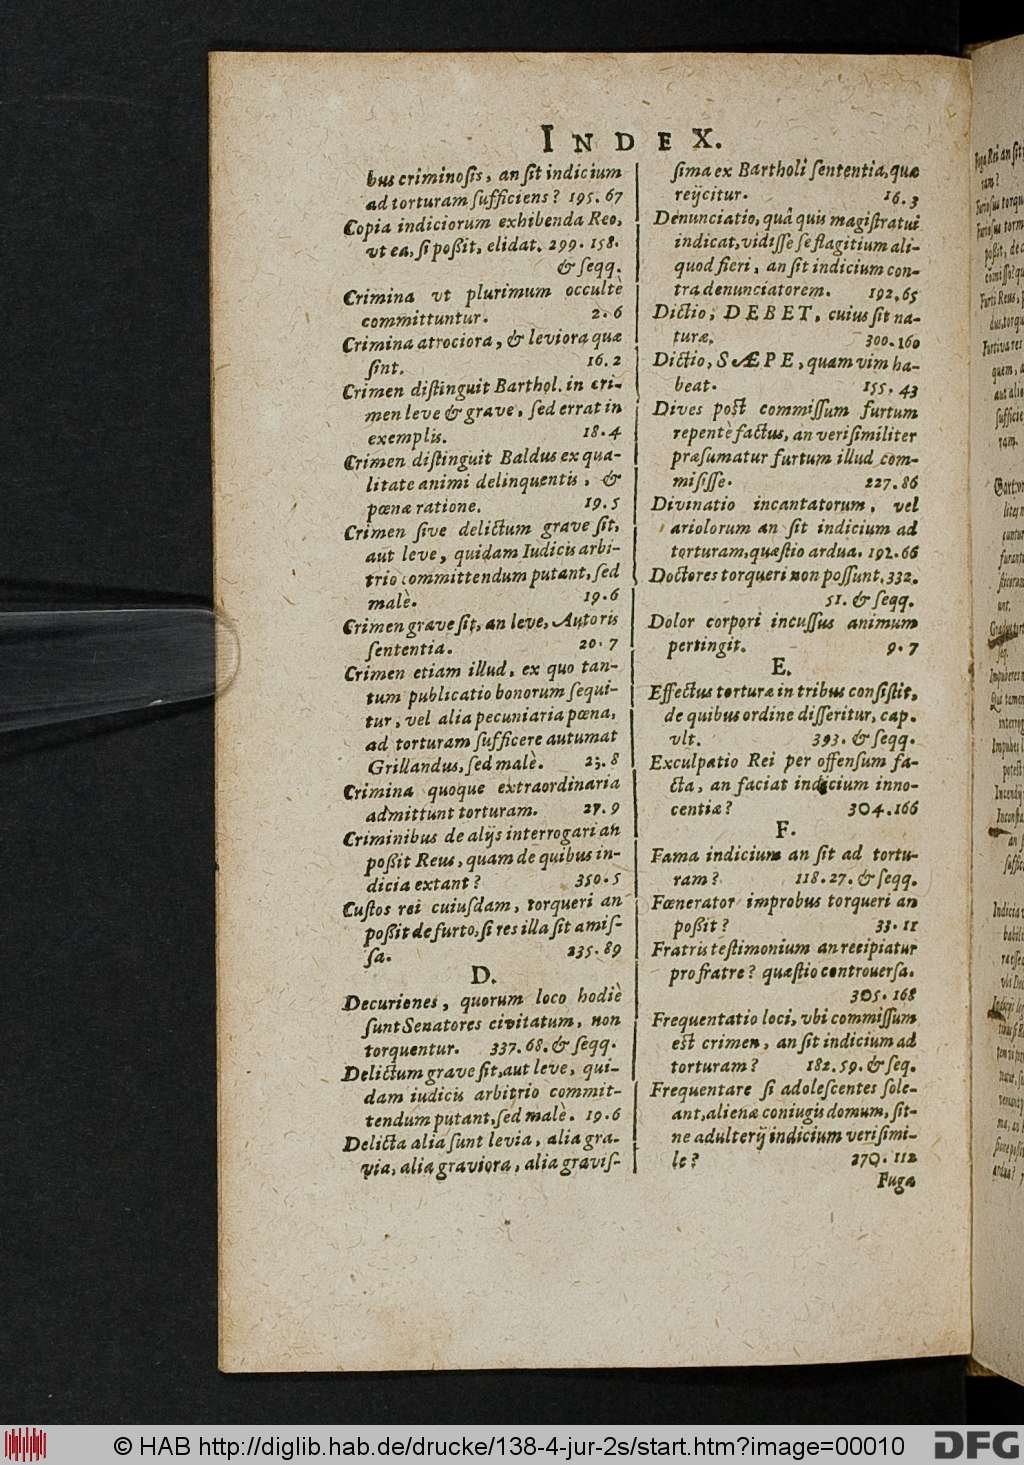 INDEX.
bus criminosis, an sit indicium
ad torturam sufficiens? 195.67
Copia indiciorum exhibenda Reo,
vt ea, si poßit, elidat. 299. 158.
& seqq.
Crimina vt plurimum occultè
committuntur. 2.6
Crimina atrociora, & leviora quæ
sint. 16.2
Crimen distinguit Barthol. in cri-
men leve & grave, sed errat in
exemplis. 18.4
Crimen distinguit Baldus ex qua-
litate animi delinquentis, &
pœnæ ratione. 19.5
Crimen sive delictum grave sit,
aut leve, quidam Iudicis arbi-
trio committendum putant, sed
malè. 19.6
Crimen grave sit, an leve, Autoris
sententia. 20.7
Crimen etiam illud, ex quo tan-
tum publicatio bonorum sequi-
tur, vel alia pecuniaria pœna,
ad torturam sufficere autumat
Grillandus, sed malè. 23.8
Crimina quoque extraordinaria
admittunt torturam. 27.9
Criminibus de alijs interrogari an
poßit Reus, quam de quibus in-
dicia extant? 350.5
Custos rei cuiusdam, torqueri an
poßit de furto, si res illa sit amis-
sa. 235.89
D.
Decuriones, quorum loco hodiè
sunt Senatores civitatum, non
torquentur. 337.68. & seqq.
Delictum grave sit, aut leve, qui-
dam iudicis arbitrio commit-
tendum putant, sed malè. 19.6
Delicta alia sunt levia, alia gra-
via, alia graviora, alia gravis-
sima ex Bartholi sententia, quæ
reijcitur. 16.3
Denunciatio, quâ quis magistratui
indicat, vidisse se flagitium ali-
quod fieri, an sit indicium con-
tra denunciatorem. 192.65
Dictio, DEBET, cuius sit na-
turæ. 300.160
Dictio, SÆPE, quam vim ha-
beat. 155.43
Dives post commissum furtum
repentè factus, an verisimiliter
præsumatur furtum illud com-
misisse. 227.86
Divinatio incantatorum, vel
ariolorum an sit indicium ad
torturam, quæstio ardua. 192.66
Doctores torqueri non possunt. 332.
51. & seqq.
Dolor corpori incussus animum
pertingit. 9.7
E.
Effectus torturæ in tribus consistit,
de quibus ordine disseritur, cap.
vlt. 393. & seqq.
Exculpatio Rei per offensum fa-
cta, an faciat indicium inno-
centiæ? 304.166
F.
Fama indicium an sit ad tortu-
ram? 118.27. & seqq.
Fœnerator improbus torqueri an
poßit? 33.11
Fratris testimonium an recipiatur
pro fratre? quæstio controuersa.
305.168
Frequentatio loci, vbi commissum
est crimen, an sit indicium ad
torturam? 182.59. & seq.
Frequentare si adolescentes sole-
ant, alienæ coniugis domum, sit-
ne adulterij indicium verisimi-
le? 270.112
Fuga
© HAB http://diglib.hab.de/drucke/138-4-jur-2s/start.htm?image=00010
DFG